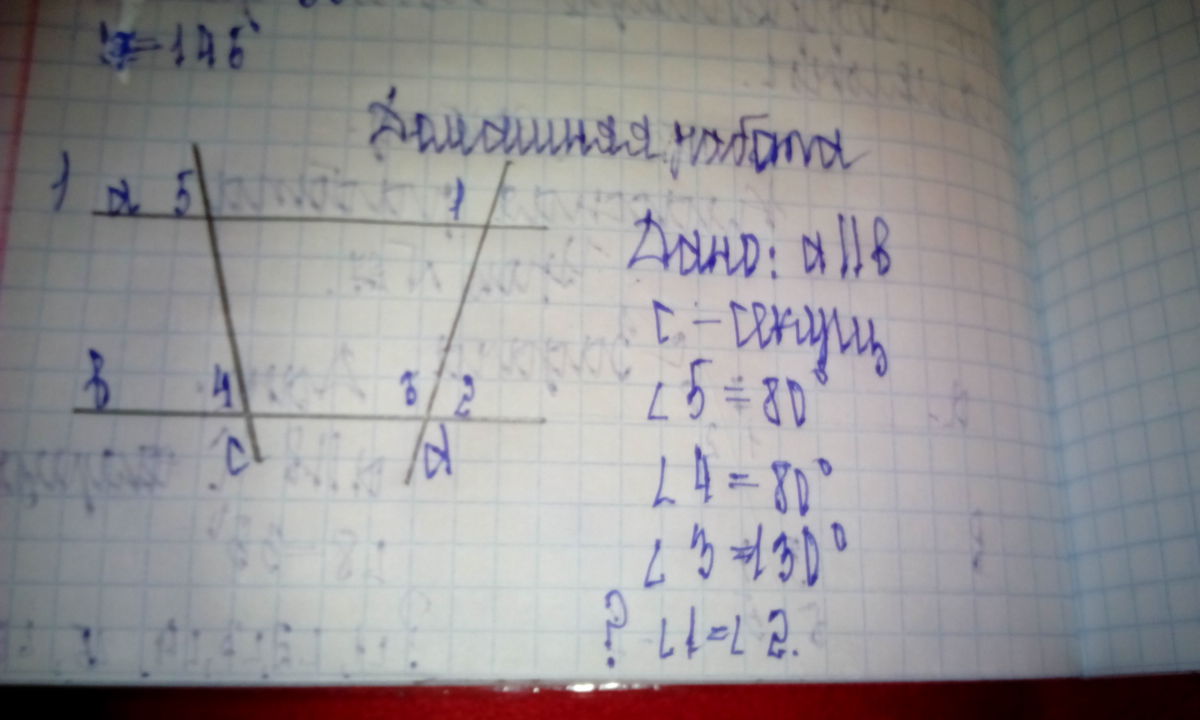 = 145°
Домашняя работа
1 a 5 1
b 4 3 2
c d
Дано: a || b
c – секущ
∠ 5 = 80°
∠ 4 = 80°
∠ 3 = 130°
? ∠1 = ∠ 2.